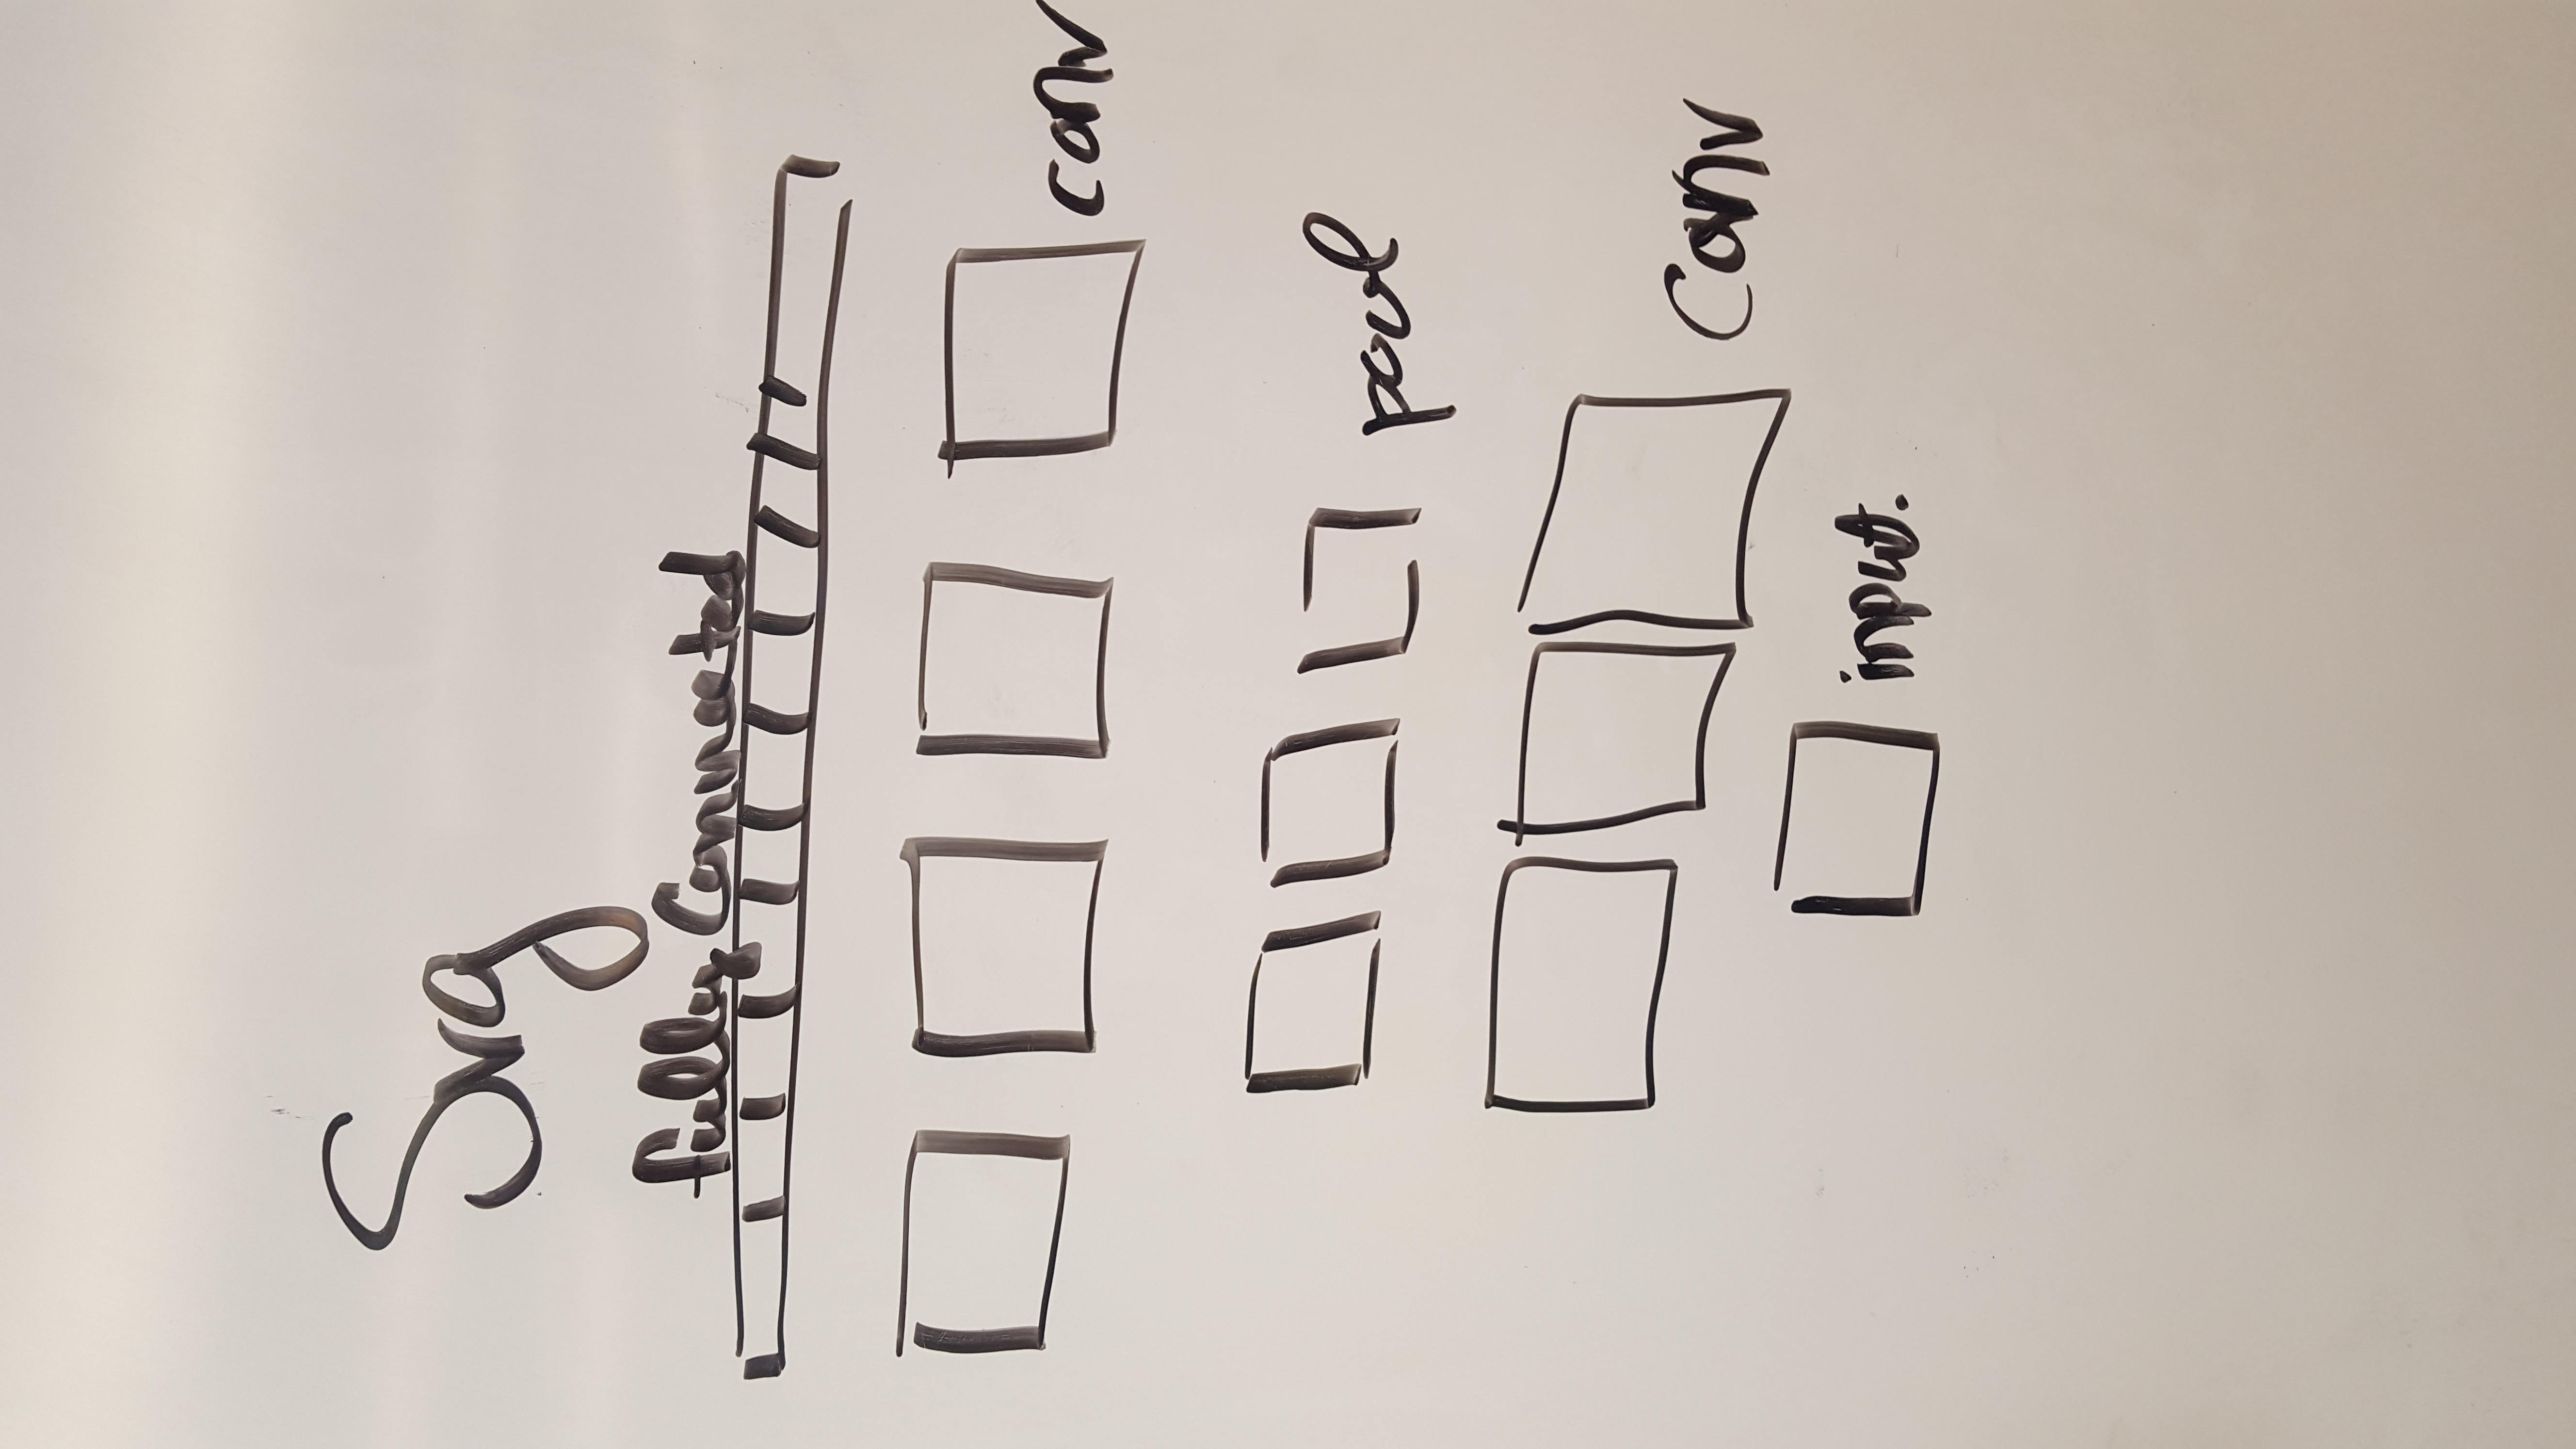 Svg
fully Connected
conv
pool
Conv
input.